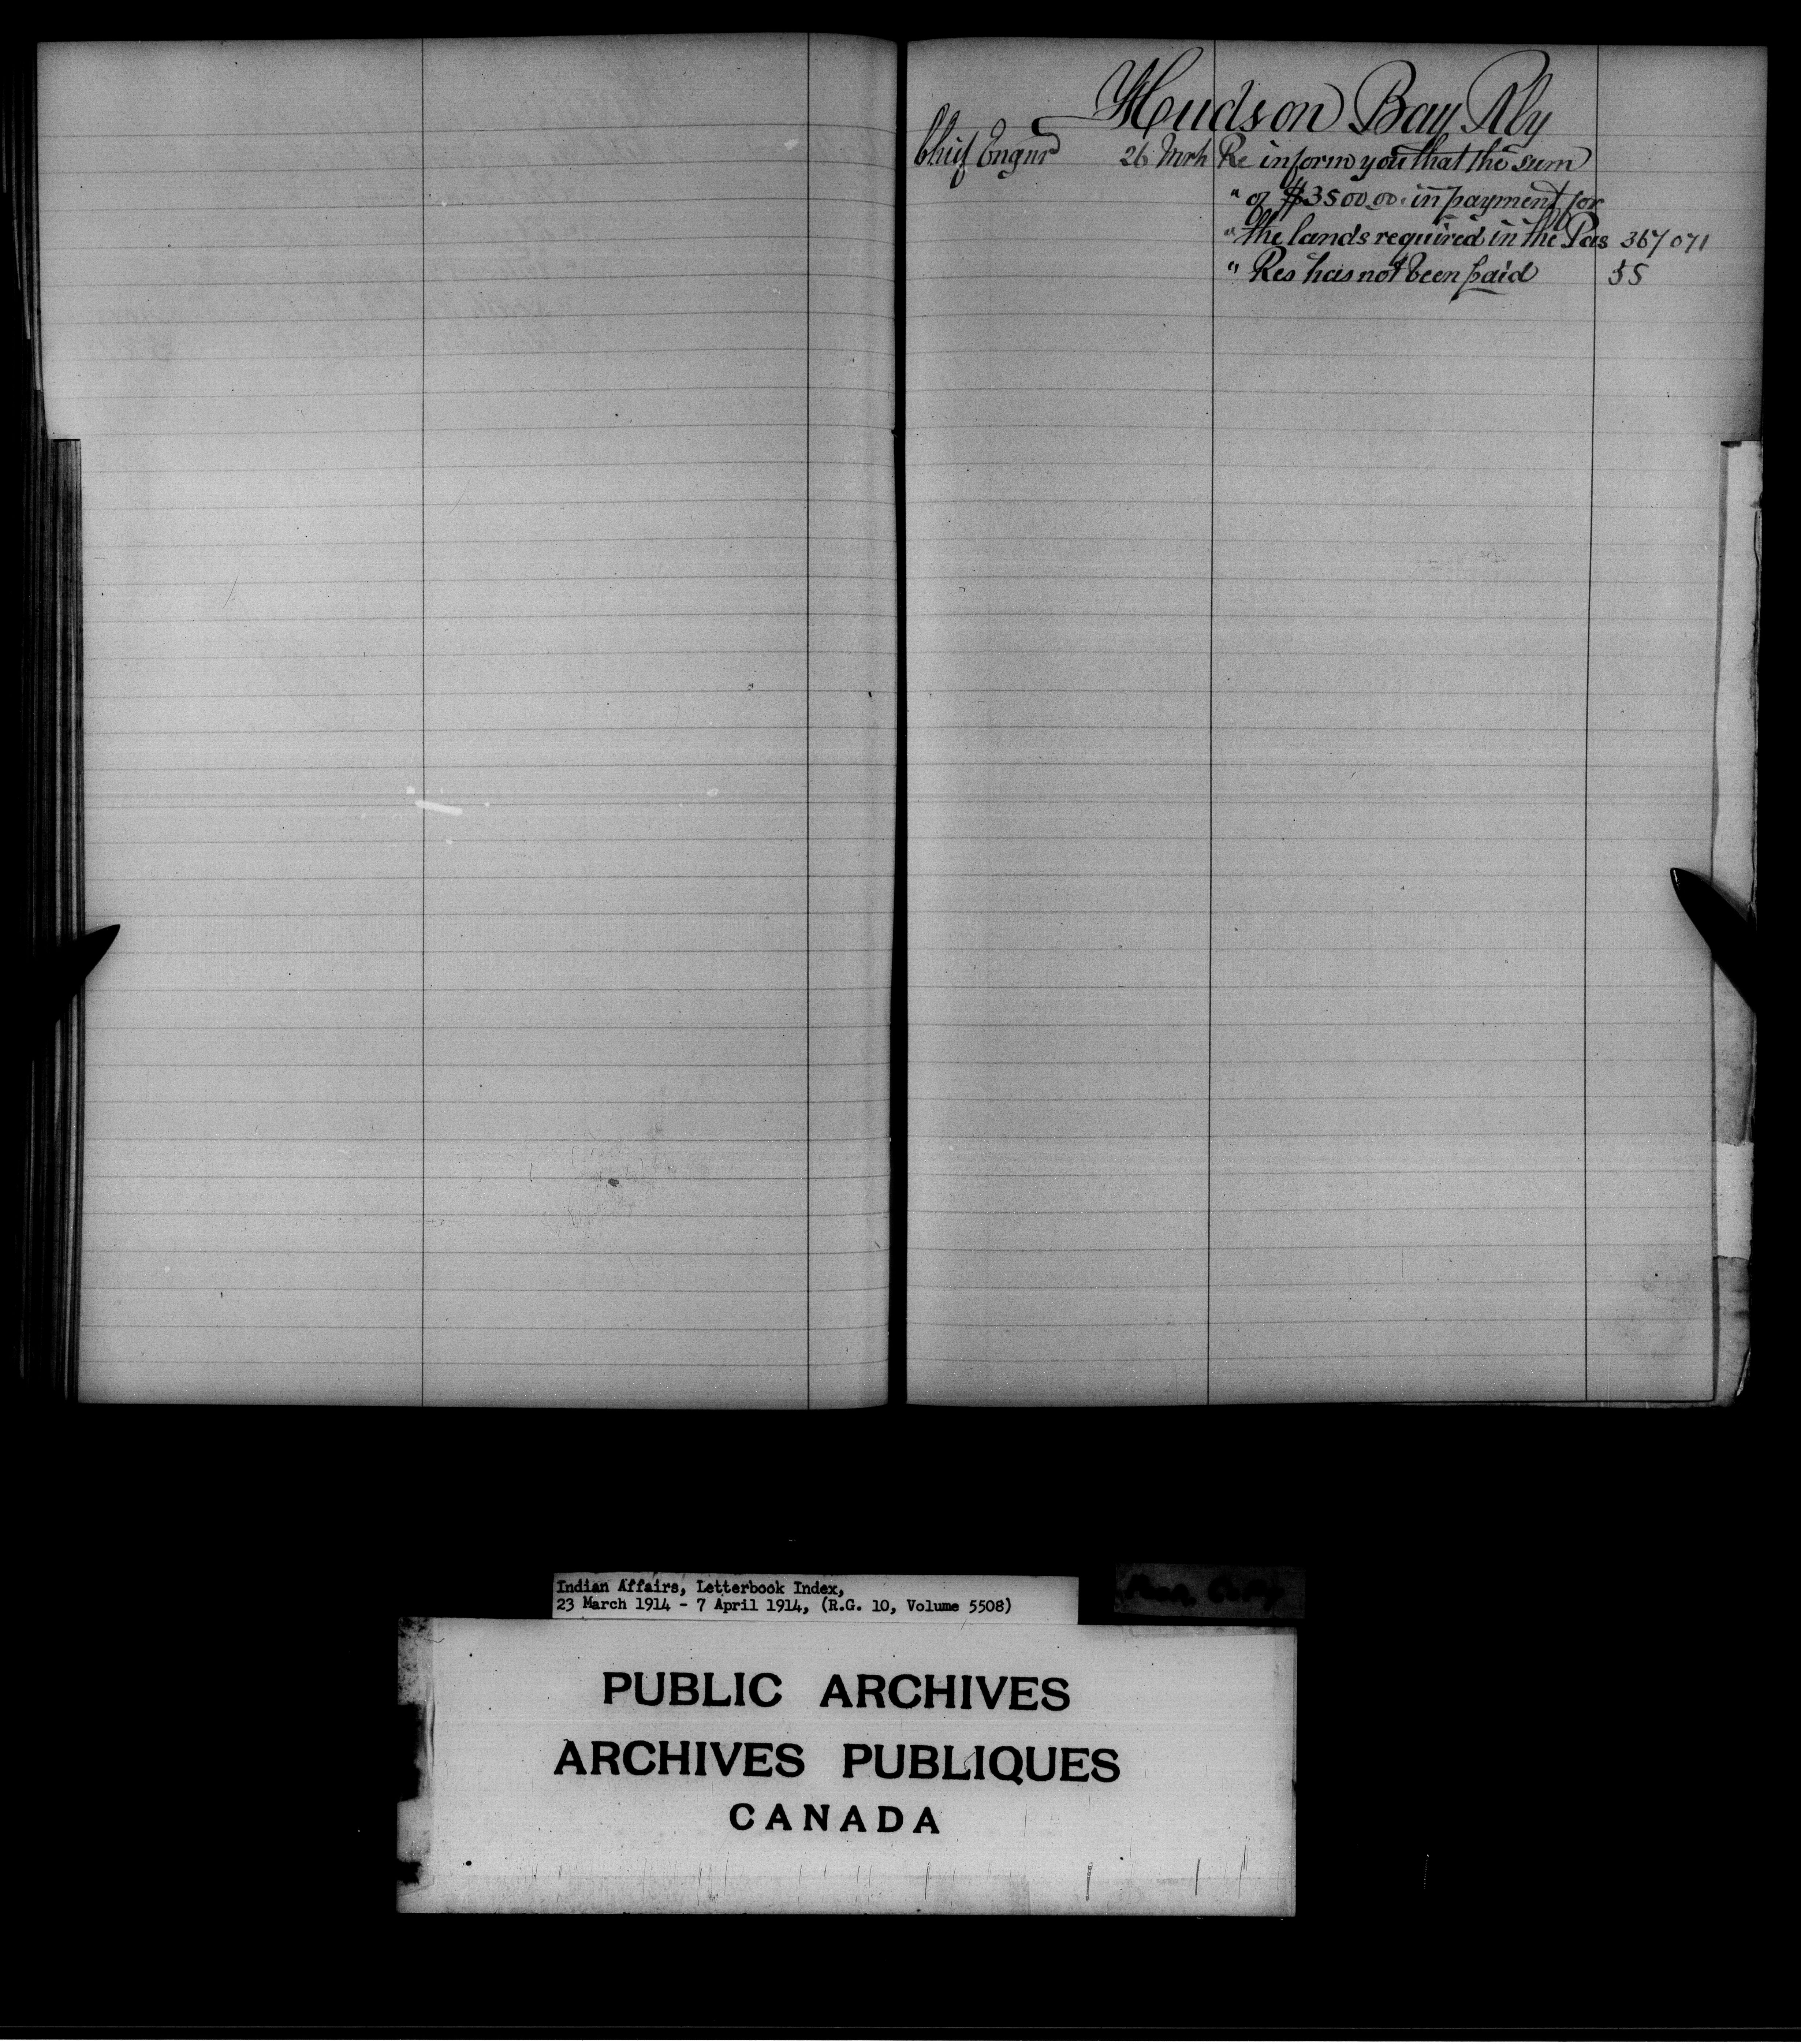 Hudson Bay Rly
Chief Engnr 26 Mrh Re inform you that the sum
" of $3500.00 in payment for
" the lands required in the Pas 367071
" Res has not been paid 55
Indian Affairs, Letterbook Index,
23 March 1914 - 7 April 1914, (R.G. 10, Volume 5508)
PUBLIC ARCHIVES
ARCHIVES PUBLIQUES
CANADA